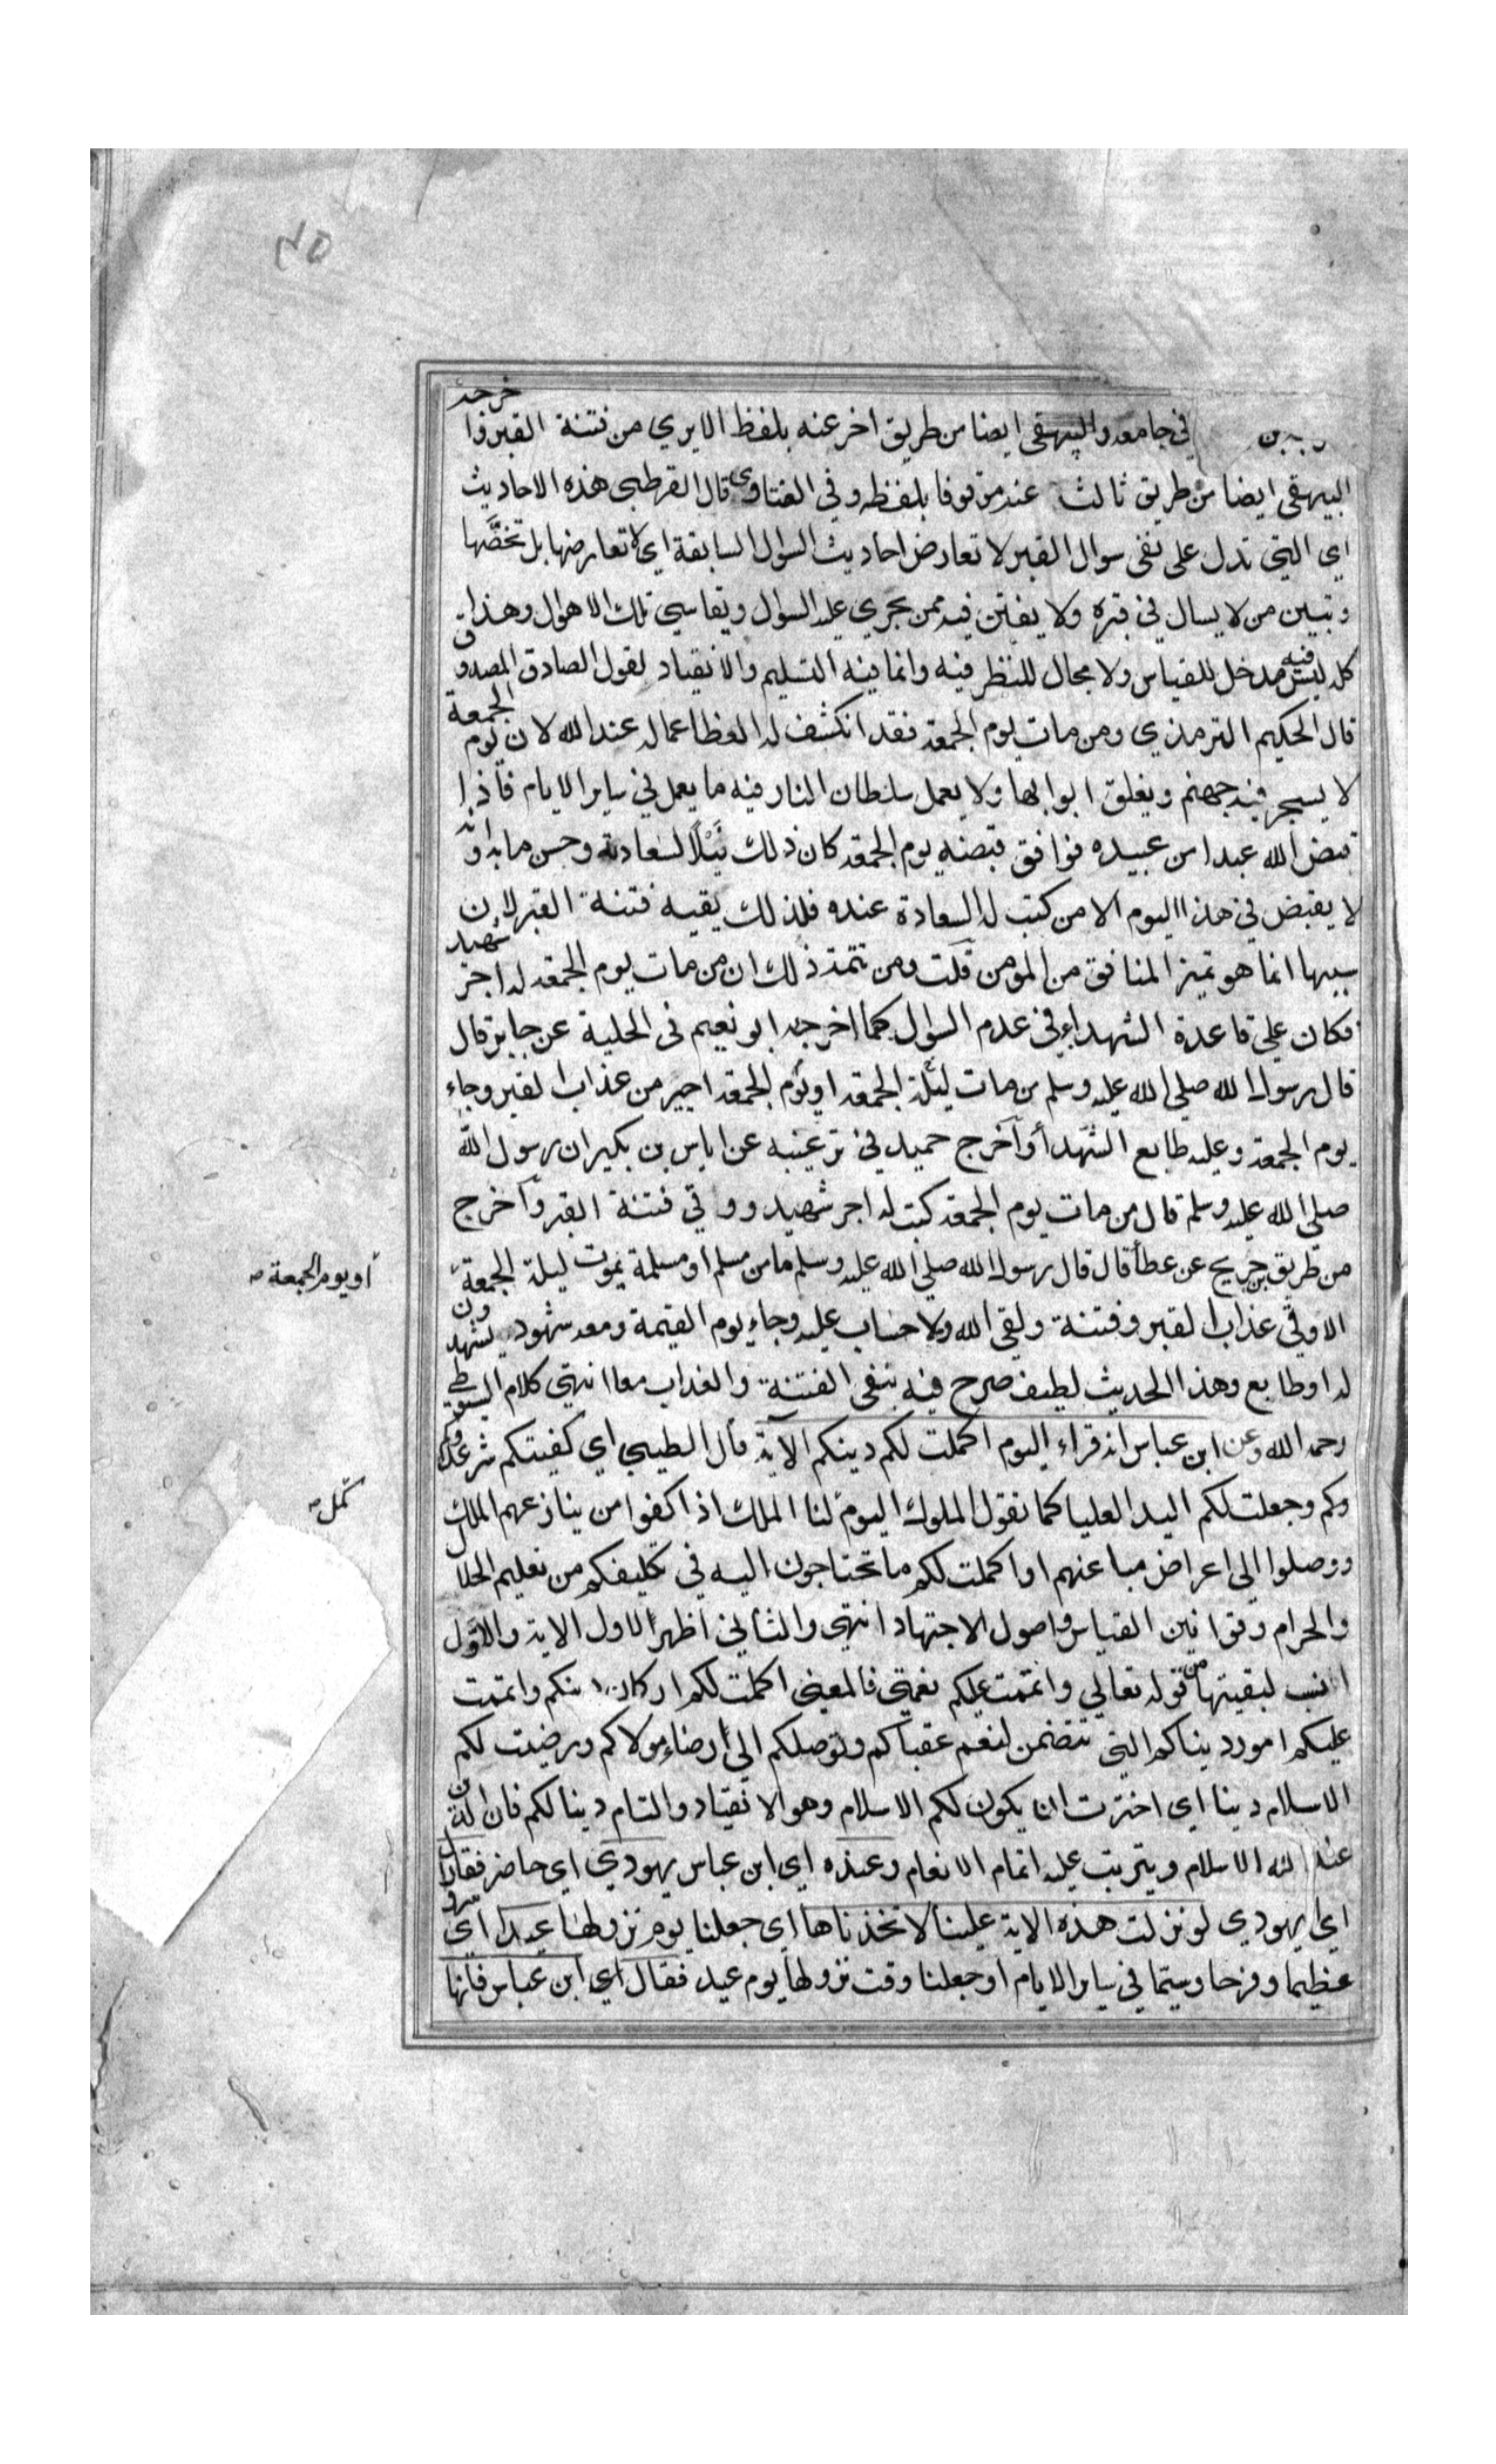 في جامعه والبيهقي ايضا من طريق اخر عنه بلفظ الابري من فتنة القبر واخرجه
البيهقي ايضا من طريق ثالث عنه موقوفا بلفظه وفي الفتاوى قال القرطبي هذه الاحاديث
اي التي تدل على نفي سوال القبر لا تعارض احاديث السوال السابقة اي لا تعارضها بل تخصّها
وتبين من لا يسال في قبره ولا يفتن فيه ممن يجري عليه السوال ويقاسي تلك الاهوال وهذا
كله ليس فيه مدخل للقياس ولا مجال للنظر فيه وانما فيه التسليم والانقياد لقول الصادق المصدوق
قال الحكيم الترمذي ومن مات يوم الجمعة فقد انكشف له الغطا عما له عند الله لان يوم الجمعة
لا يسجر فيه جهنم ويغلق ابوابها ولا يعمل سلطان النار فيه ما يعمل في ساير الايام فاذا
قبض الله عبدا من عبيده فوافق قبضه يوم الجمعة كان ذلك نَيْلًا لسعادته وحسن مابه وانه
لا يقبض في هذا اليوم الا من كتب له السعادة عنده فلذلك يقيه فتنة القبر لان
سببها انما هو تميز المنافق من المومن قلت ومن تتمة ذلك ان من مات يوم الجمعة له اجر شهيد
فكان على قاعدة الشهداء في عدم السوال كما اخرجه ابو نعيم في الحلية عن جابر قال
قال رسول الله صلى الله عليه وسلم من مات ليلة الجمعة او يوم الجمعة اجير من عذاب القبر وجاء
يوم الجمعة وعليه طابع الشهدأ وآخرج حميد في ترغيبه عن اياس بن بكير ان رسول الله
صلى الله عليه وسلم قال من مات يوم الجمعة كتب له اجر شهيد ووقي فتنة القبر وآخرج
من طريق بن جريج عن عطأ قال قال رسول الله صلى الله عليه وسلم ما من مسلم او مسلمة يموت ليلة الجمعة
أو يوم الجمعة صح
الا وقي عذاب القبر وفتنة ولقي الله ولا حساب عليه وجاء يوم القيمة ومعه شهود يشهدون
له او طابع وهذا الحديث لطيف صرح فيه بنفي الفتنة والعذاب معا انتهى كلام السيوطي
رحمه الله وعن ابن عباس انه قراء اليوم اكملت لكم دينكم الآية قال الطيبي اي كفيتكم شر عدوكم
وكم وجعلت لكم اليد العليا كما نقول الملوك اليوم لنا الملك اذا كفوا من ينازعهم الملك
كمل صح
ووصلوا الى اعراض مباغيهم او اكملت لكم ما تحتاجون اليه في تكليفكم من تعليم الحلال
والحرام وقوانين القياس واصول الاجتهاد انتهى والثاني اظهر الاول الاية والاوّل
انسب لبقيتها من قوله تعالى واتممت عليكم نعمتي فالمعنى اكملت لكم اركان دينكم واتممت
عليكم امور ديناكم التي تتضمن لنعم عقباكم وتوصلكم الى أرضاء مولاكم ورضيت لكم
الاسلام دينا اي اخترت ان يكون لكم الاسلام وهو الانقياد والتام دينا لكم فان الدين
عند الله الاسلام ويترتب عليه اتمام الانعام وعنده اي ابن عباس يهودي اي حاضر فقال
اي يهودي لو نزلت هذه الاية علينا لاتخذناها اي جعلنا يوم نزولها عيدا اي
عظيما وفرحا وسيما في ساير الايام او جعلنا وقت نزولها يوم عيد فقال اي ابن عباس فانها